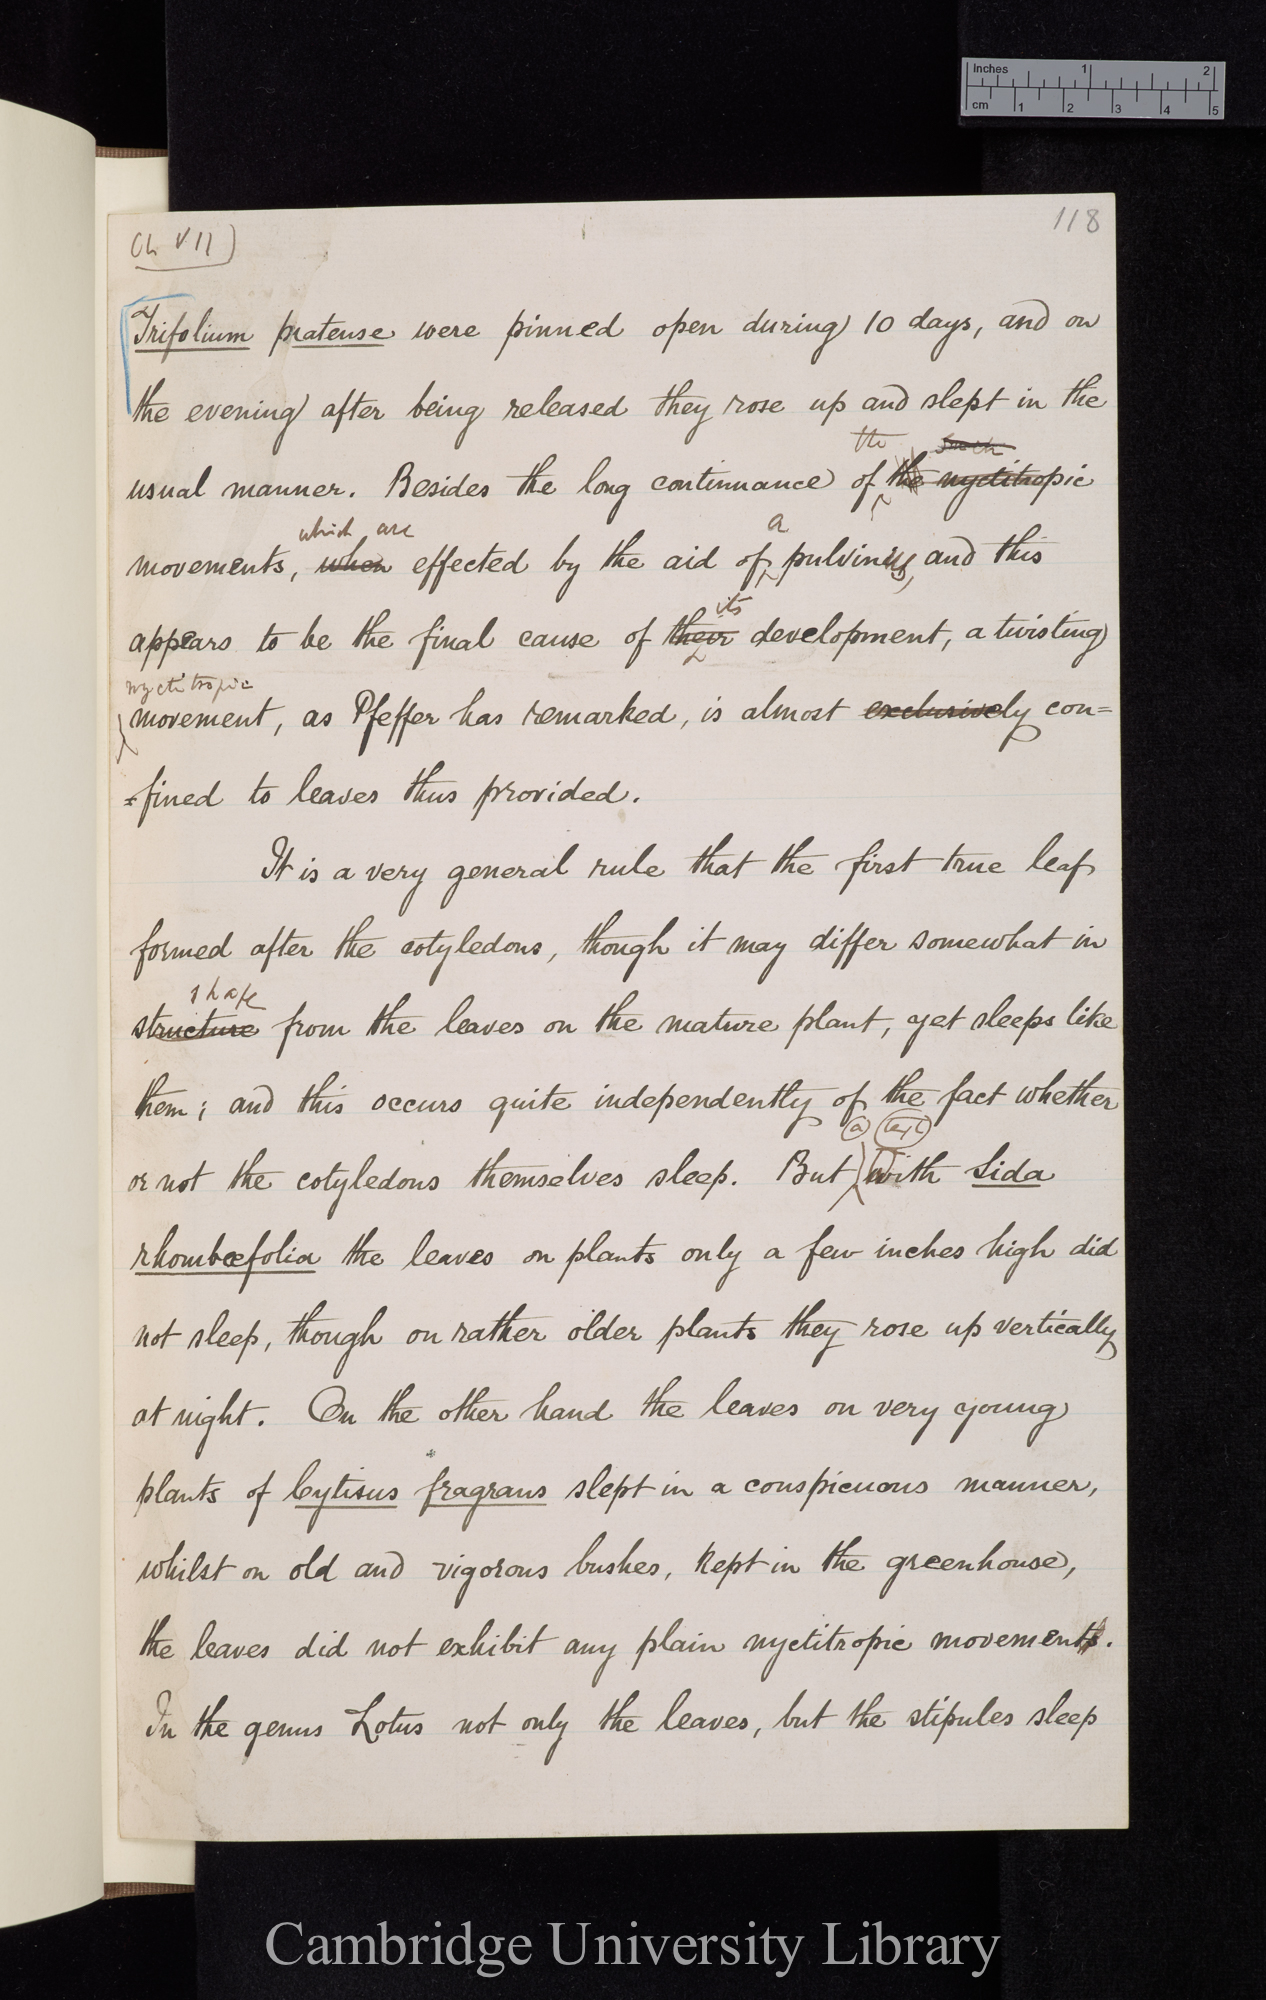 Inches 1 2
cm 1 2 3 4 5
118
Ch VII)
Trifolium pratense were pinned open during 10 days, and on
the evening after being released they rose up and slept in the
the such
usual manner. Besides the long continuance of the nyctitropic
which are a
movements, when effected by the aid of pulvinus, and this
its
appears to be the final cause of their development, a twisting
nyctitropic
movement, as Pfeffer has remarked, is almost exclusively con=
=fined to leaves thus provided.
It is a very general rule that the first true leaf
formed after the cotyledons, though it may differ somewhat in
shape
structure from the leaves on the mature plant, yet sleeps like
them; and this occurs quite independently of the fact whether
(a) text
or not the cotyledons themselves sleep. But with Sida
rhombæfolia the leaves on plants only a few inches high did
not sleep, though on rather older plants they rose up vertically
at night. On the other hand the leaves on very young
plants of Cytisus fragrans slept in a conspicuous manner,
whilst on old and vigorous bushes, kept in the greenhouse,
the leaves did not exhibit any plain nyctitropic movement.
In the genus Lotus not only the leaves, but the stipules sleep
Cambridge University Library